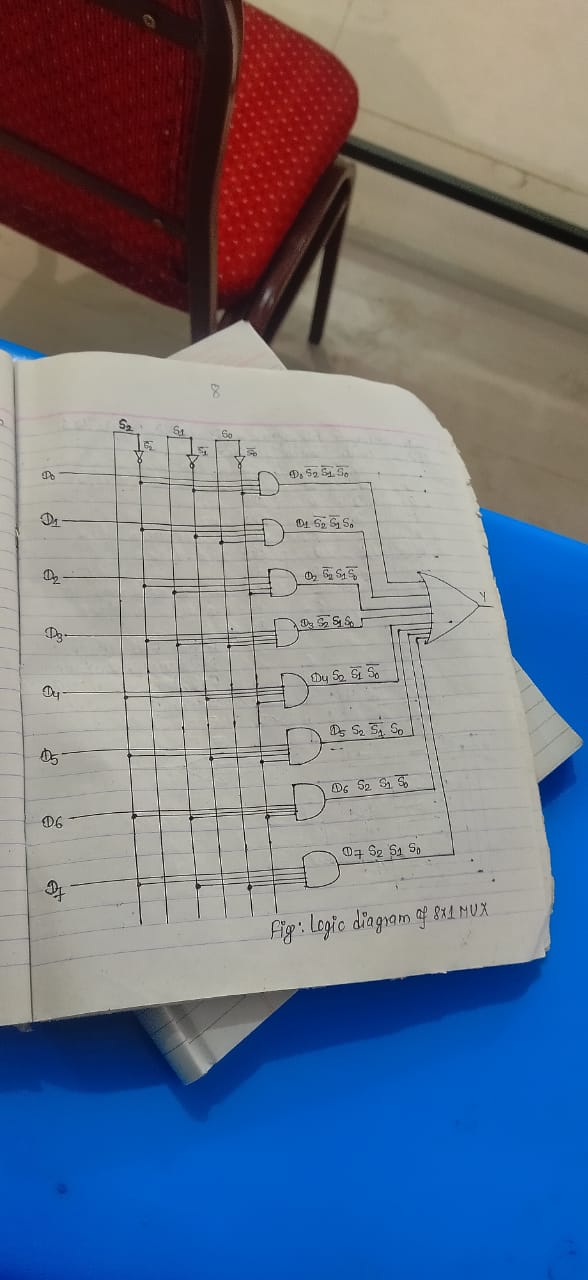 8
S2 S1 S0
S̅2̅ S̅1̅ S̅0̅
D0
D0 S̅2̅ S̅1̅ S̅0̅
D1
D1 S̅2̅ S̅1̅ S0
D2
D2 S̅2̅ S1 S̅0̅
Y
D3
D3 S̅2̅ S1 S0
D4
D4 S2 S̅1̅ S̅0̅
D5
D5 S2 S̅1̅ S0
D6
D6 S2 S1 S̅0̅
D7
D7 S2 S1 S0
Fig: Logic diagram of 8x1 MUX